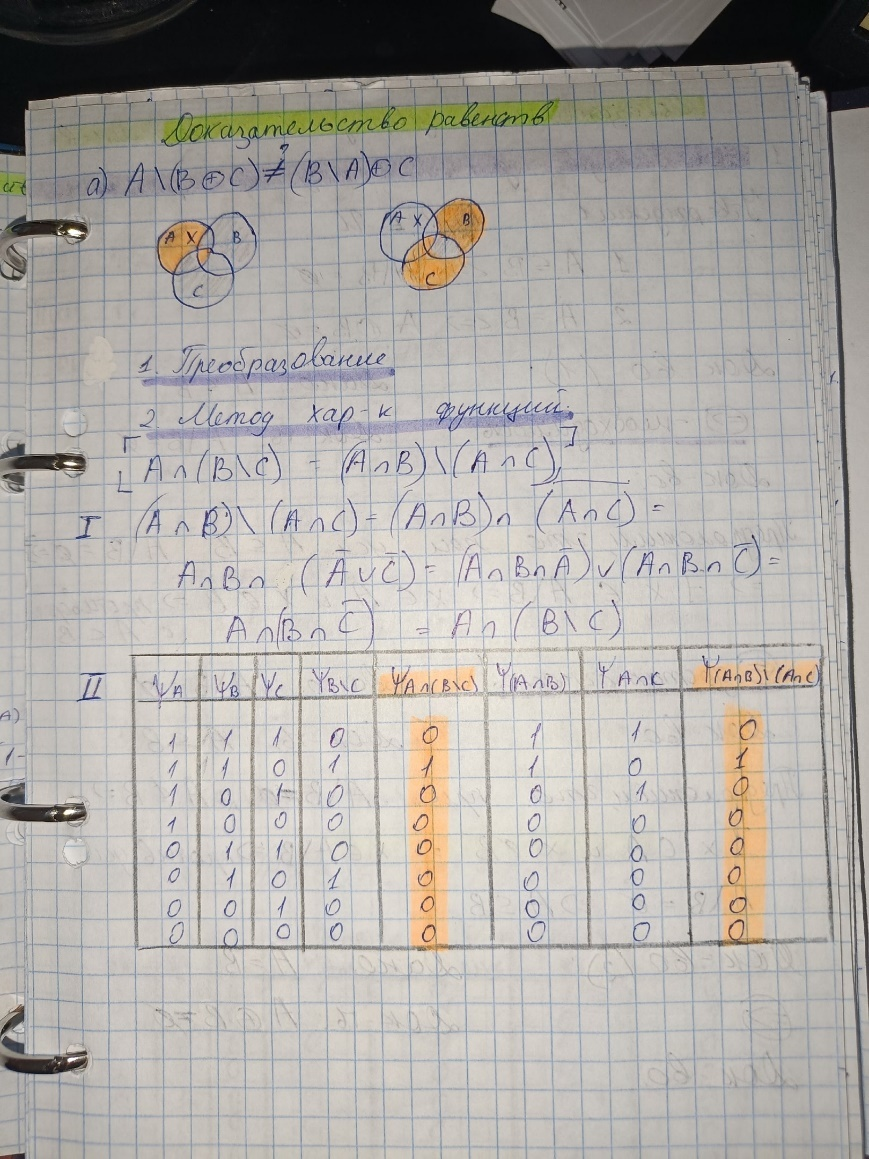 Доказательство равенств
а) A \ (B ⊕ C) ≠? (B \ A) ⊕ C
A X B C
A X B C
1. Преобразование
2 Метод хар-к функций.
[A ∩ (B \ C) = (A ∩ B) \ (A ∩ C)]
I (A ∩ B) \ (A ∩ C) = (A ∩ B) ∩ (A̅ ̅∩̅ ̅C̅) =
A ∩ B ∩ (Ā ∪ C̄) = (A ∩ B ∩ Ā) ∪ (A ∩ B ∩ C̄) =
A ∩ (B ∩ C̄) = A ∩ (B \ C)
II ψA ψB ψC ψB\C ψA∩(B\C) ψ(A∩B) ψA∩C ψ(A∩B)\(A∩C)
1 1 1 0 0 1 1 0
1 1 0 1 1 1 0 1
1 0 1 0 0 0 1 0
1 0 0 0 0 0 0 0
0 1 1 0 0 0 0 0
0 1 0 1 0 0 0 0
0 0 1 0 0 0 0 0
0 0 0 0 0 0 0 0